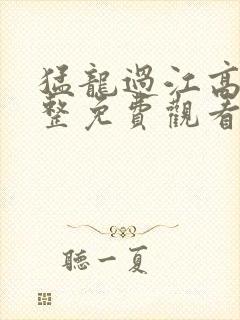 猛龍過江高
整免費觀看
聽一夏